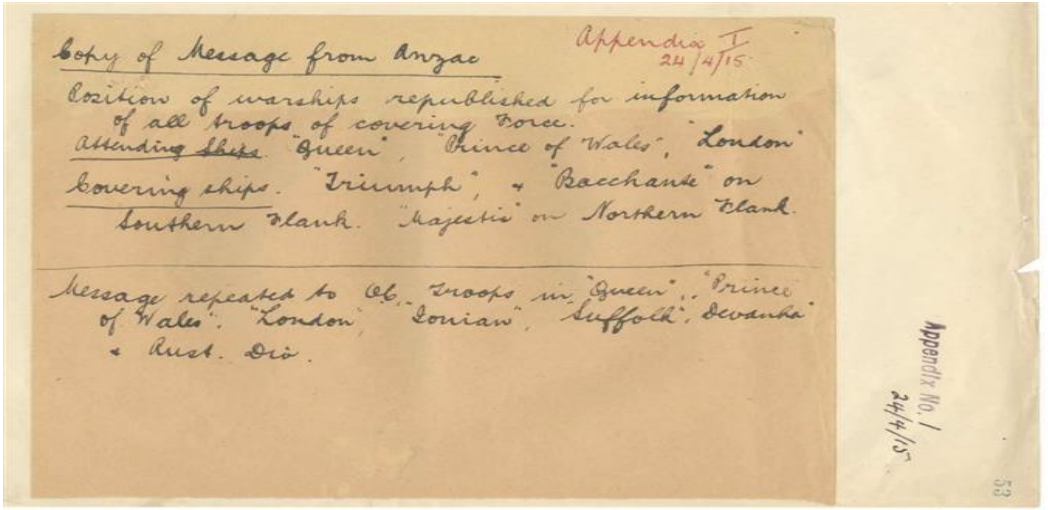 Copy of Message from Anzac
Appendix I
24/4/15
Position of warships republished for information
of all troops of covering Force.
Attending Ships. "Queen", "Prince of Wales", "London"
Covering ships. "Triumph", & "Bacchante" on
Southern Flank. "Majestic" on Northern Flank.
Message repeated to O.C. Troops in "Queen", "Prince
of Wales", "London", "Ionian", "Suffolk", Devanha"
& Aust. Div.
Appendix No. 1
24/4/15
53